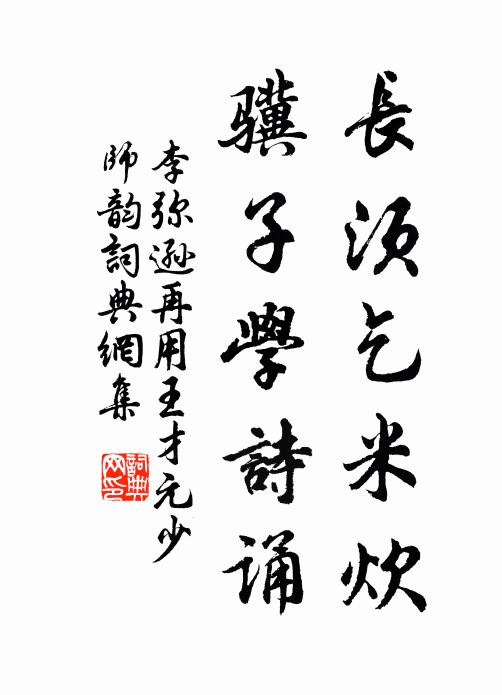 長须乞米炊
骥子學詩诵
李弥逊再用王才元少
師韵詞典網集
詞典网印